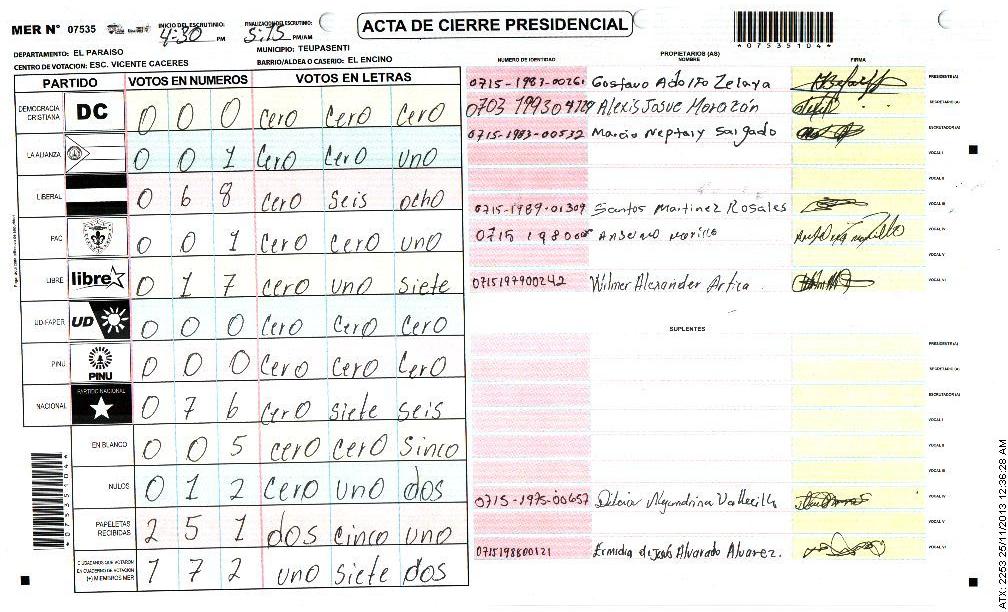 MER N° 07535
INICIO DEL ESCRUTINIO: 4:30 PM
FINALIZACION DEL ESCRUTINIO: 5:15 PM/AM
ACTA DE CIERRE PRESIDENCIAL
*07535104*
DEPARTAMENTO: EL PARAISO
MUNICIPIO: TEUPASENTI
CENTRO DE VOTACION: ESC. VICENTE CACERES
BARRIO/ALDEA O CASERIO: EL ENCINO
PARTIDO VOTOS EN NUMEROS VOTOS EN LETRAS
DEMOCRACIA CRISTIANA DC 0 0 0 cero cero cero
LA ALIANZA 0 0 1 cero cero uno
LIBERAL 0 6 8 cero seis ocho
PAC 0 0 1 cero cero uno
LIBRE libre 0 1 7 cero uno siete
UD-FAPER UD 0 0 0 cero cero cero
PINU PINU 0 0 0 cero cero cero
NACIONAL PARTIDO NACIONAL 0 7 6 cero siete seis
EN BLANCO 0 0 5 cero cero sinco
NULOS 0 1 2 cero uno dos
PAPELETAS RECIBIDAS 2 5 1 dos cinco uno
CIUDADANOS QUE VOTARON EN CUADERNO DE VOTACION (+) MIEMBROS MER 1 7 2 uno siete dos
*07535104*
PROPIETARIOS (AS)
NUMERO DE IDENTIDAD NOMBRE FIRMA
0715-1987-0026 Gustavo Adolfo Zelaya PRESIDENTE(A)
0703 1993 04729 Alexis Josue Morazón SECRETARIO(A)
0715-1983-00532 Marcio Neptaly Salgado ESCRUTADOR(A)
VOCAL I
VOCAL II
0715-1989-01309 Santos Martinez Rosales VOCAL III
0715 1980 Anselmo VOCAL IV
VOCAL V
0715197900242 Wilmer Alexander Artica VOCAL VI
SUPLENTES
PRESIDENTE(A)
SECRETARIO(A)
ESCRUTADOR(A)
VOCAL I
VOCAL II
VOCAL III
0715-1975-00657 Vallecillo VOCAL IV
VOCAL V
0715198800121 Ermidia de Jesús Alvarado Alvarez. VOCAL VI
ATX: 2253 25/11/2013 12:36:28 AM